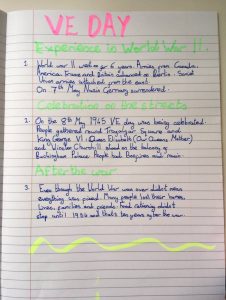 VE DAY
Experience is World War II.
1. World war II went on for 6 years. Armies from Canada,
America, France and Britain advanced on Berlin. Soviet
Union armies attacked from the east.
On 7th May Nazi Germany surrendered.
Celebrating on the streets
2. On the 8th May 1945 VE day was being celebrated.
People gathered round Trafalgar Square and
King George VI, Queen Elizabeth (Our Queens Mother)
and Winston Churchill stood on the balcony of
Buckingham Palace. People had Bonfires and music.
After the war
3. Even though the World War was over didn't mean
everything was joyed. Many people lost their homes,
Lives, families and friends. Food rationing didn't
stop until 1954 and that's ten years after the war.